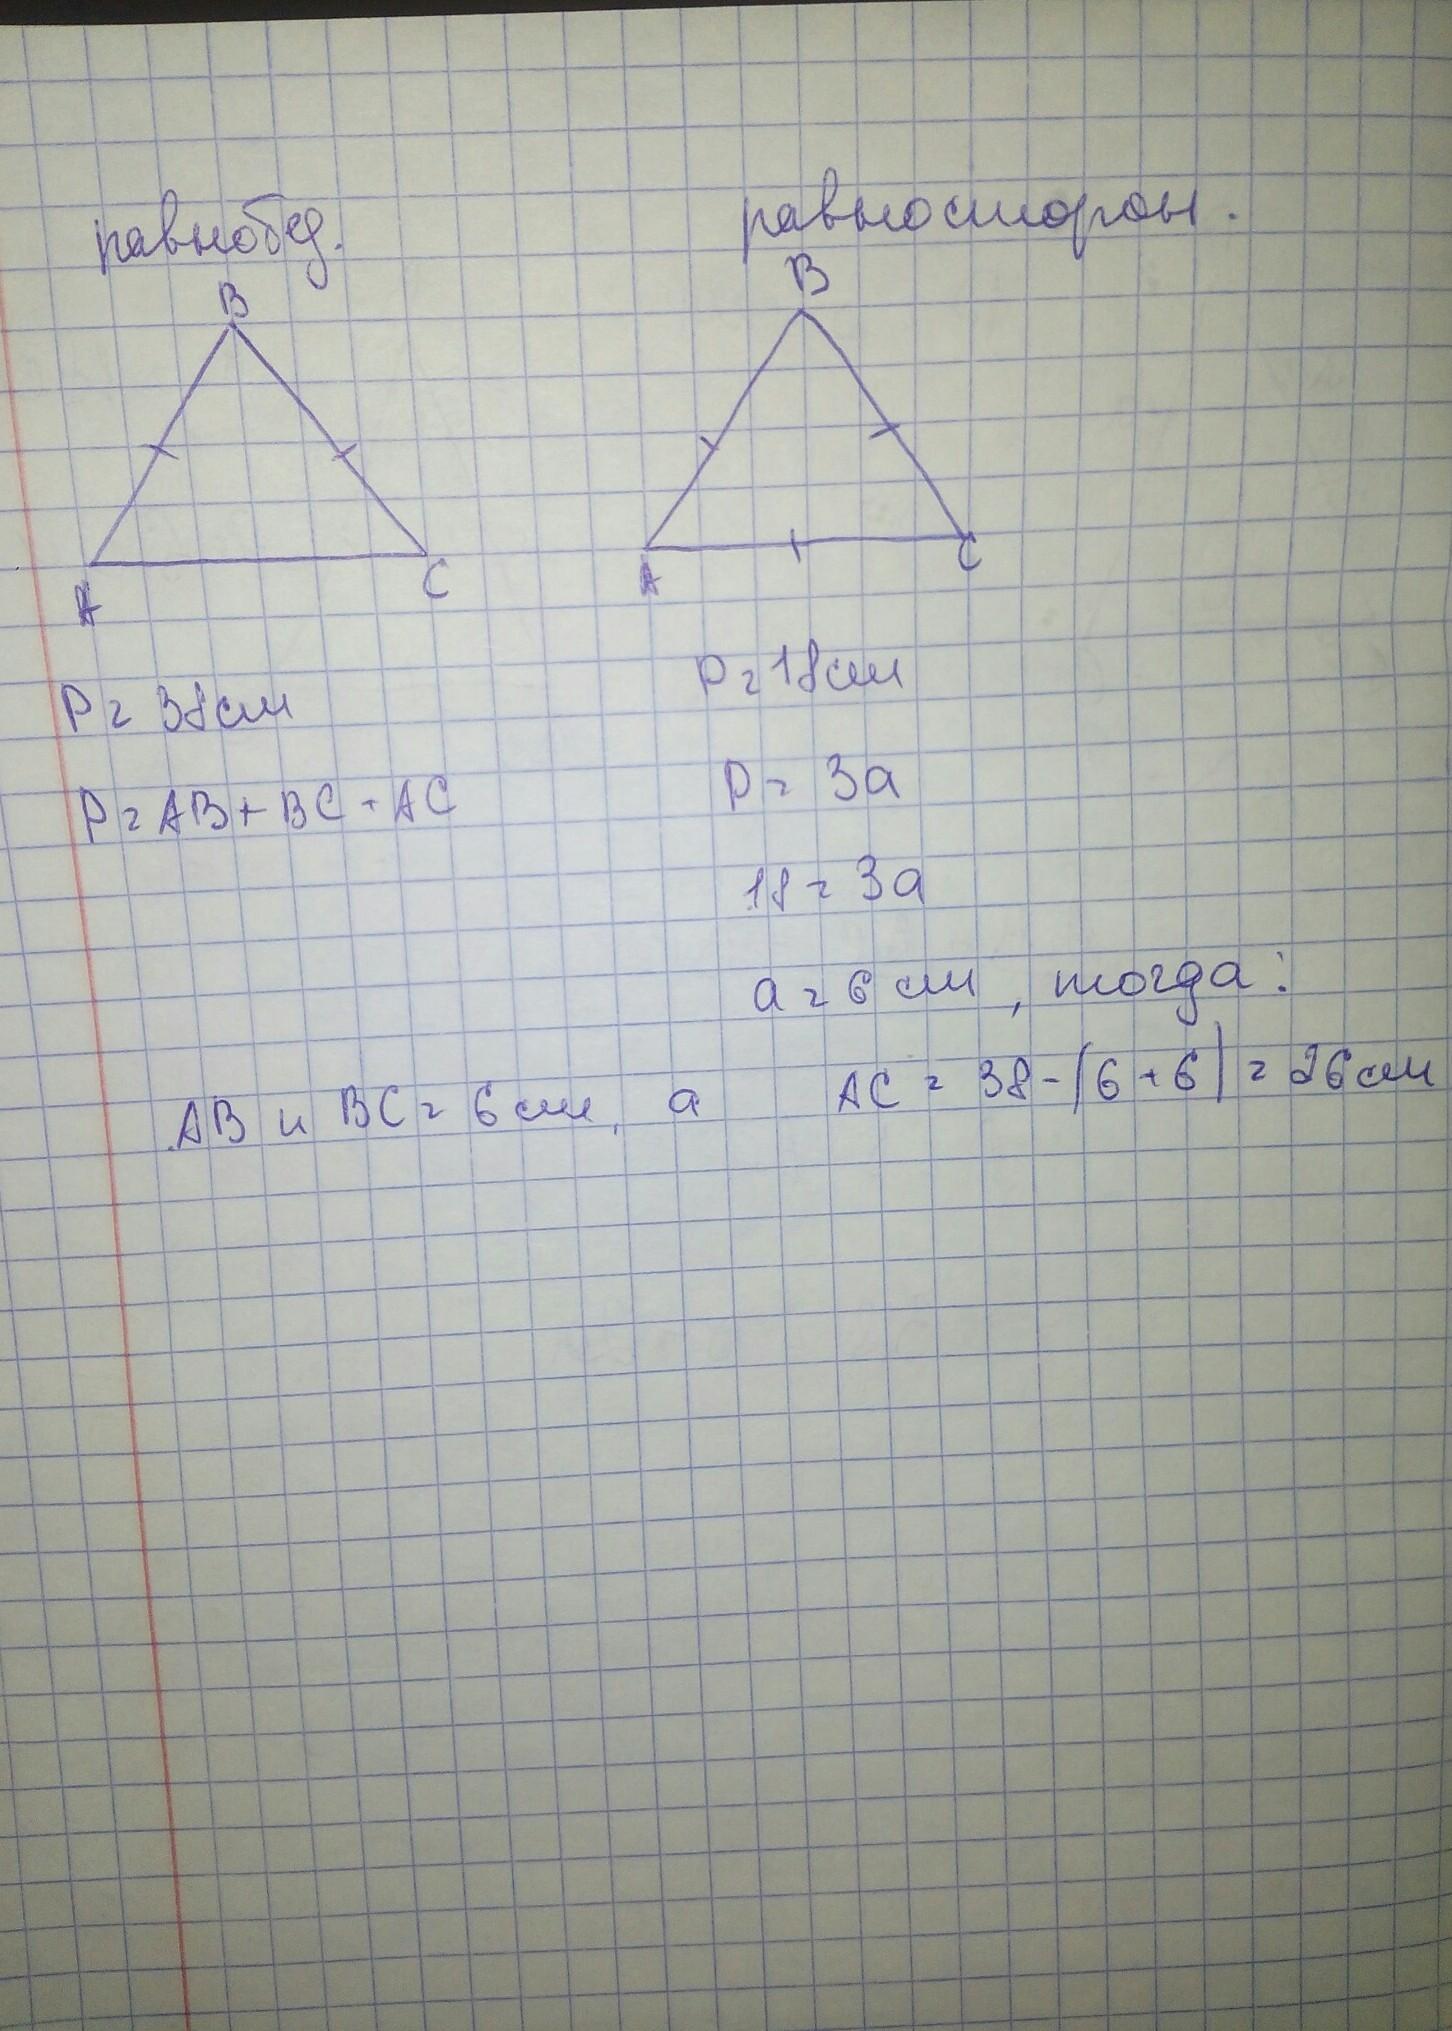 равнобед.
равносторон.
B
B
A
C
A
C
P = 38см
P = 18см
P = AB + BC + AC
P = 3a
18 = 3a
a = 6 см, тогда:
AB и BC = 6 см, а AC = 38 - (6 + 6) = 26см